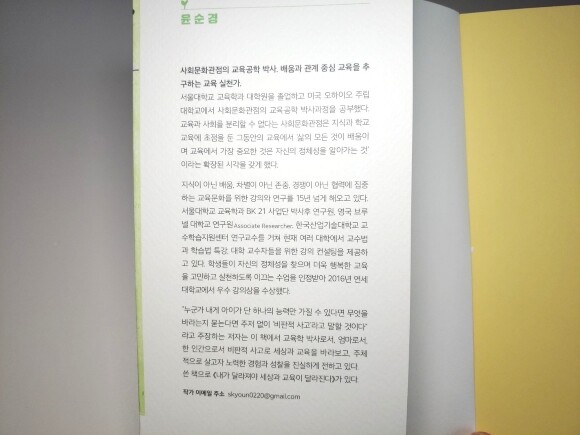 윤순경
사회문화관점의 교육공학 박사. 배움과 관계 중심 교육을 추
구하는 교육 실천가.
서울대학교 교육학과 대학원을 졸업하고 미국 오하이오 주립
대학교에서 사회문화관점의 교육공학 박사과정을 공부했다.
교육과 사회를 분리할 수 없다는 사회문화관점은 지식과 학교
교육에 초점을 둔 그동안의 교육에서 '삶의 모든 것이 배움이
며 교육에서 가장 중요한 것은 자신의 정체성을 알아가는 것'
이라는 확장된 시각을 갖게 했다.
지식이 아닌 배움, 차별이 아닌 존중, 경쟁이 아닌 협력에 집중
하는 교육문화를 위한 강의와 연구를 15년 넘게 해오고 있다.
서울대학교 교육학과 BK 21 사업단 박사후 연구원, 영국 브루
넬 대학교 연구원Associate Researcher, 한국산업기술대학교 교
수학습지원센터 연구교수를 거쳐 현재 여러 대학에서 교수법
과 학습법 특강, 대학 교수자들을 위한 강의 컨설팅을 제공하
고 있다. 학생들이 자신의 정체성을 찾으며 더욱 행복한 교육
을 고민하고 실천하도록 이끄는 수업을 인정받아 2016년 연세
대학교에서 우수 강의상을 수상했다.
"누군가 내게 아이가 단 하나의 능력만 가질 수 있다면 무엇을
바라는지 묻는다면 주저 없이 '비판적 사고'라고 말할 것이다"
라고 주장하는 저자는 이 책에서 교육학 박사로서, 엄마로서,
한 인간으로서 비판적 사고로 세상과 교육을 바라보고, 주체
적으로 살고자 노력한 경험과 성찰을 진실하게 전하고 있다.
쓴 책으로 《내가 달라져야 세상과 교육이 달라진다》가 있다.
작가 이메일 주소 skyoun0220@gmail.com